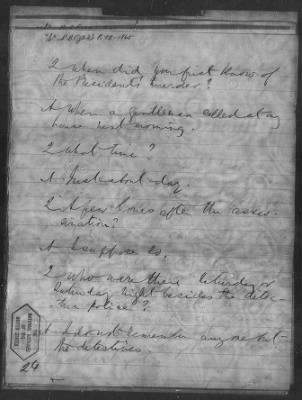 Q When did you first know of
the President's murder?
A When a gentleman called at my
house next morning.
Q What time?
A Just about day.
Q A few hours after the assas-
sination?
A I suppose so.
Q Who were there Saturday or
Saturday night besides the detec-
tive police?
A I do not remember any one but
the detectives.
24